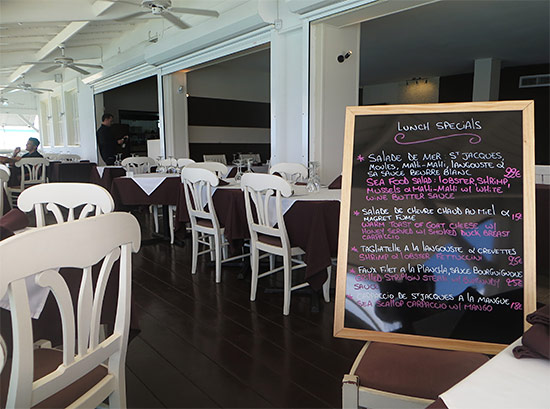 LUNCH SPECIALS
* SALADE DE MER ST JACQUES,
MOULES, MAHI-MAHI, LANGOUSTE &
SA SAUCE AU BEURRE BLANC
SEA FOOD SALAD: LOBSTER SHRIMP,
MUSSELS & MAHI-MAHI W/ WHITE
WINE BUTTER SAUCE
* SALADE DE CHEVRE CHAUD AU MIEL &
MAGRET FUME
WARM TOAST OF GOAT CHEESE W/
HONEY SERVED W/ SMOKED DUCK BREAST
CARPACCIO
* TAGLIATELLE A LA LANGOUSTE & CREVETTES
SHRIMP & LOBSTER FETTUCCINI
* FAUX FILET A LA PLANCHA, SAUCE BOURGUIGNONE
GRILLED STRIPLOIN STEAK W/
SAUCE
CARPACCIO DE ST JACQUES A LA MANGUE
SEA SCALLOP CARPACCIO W/ MANGO 18€